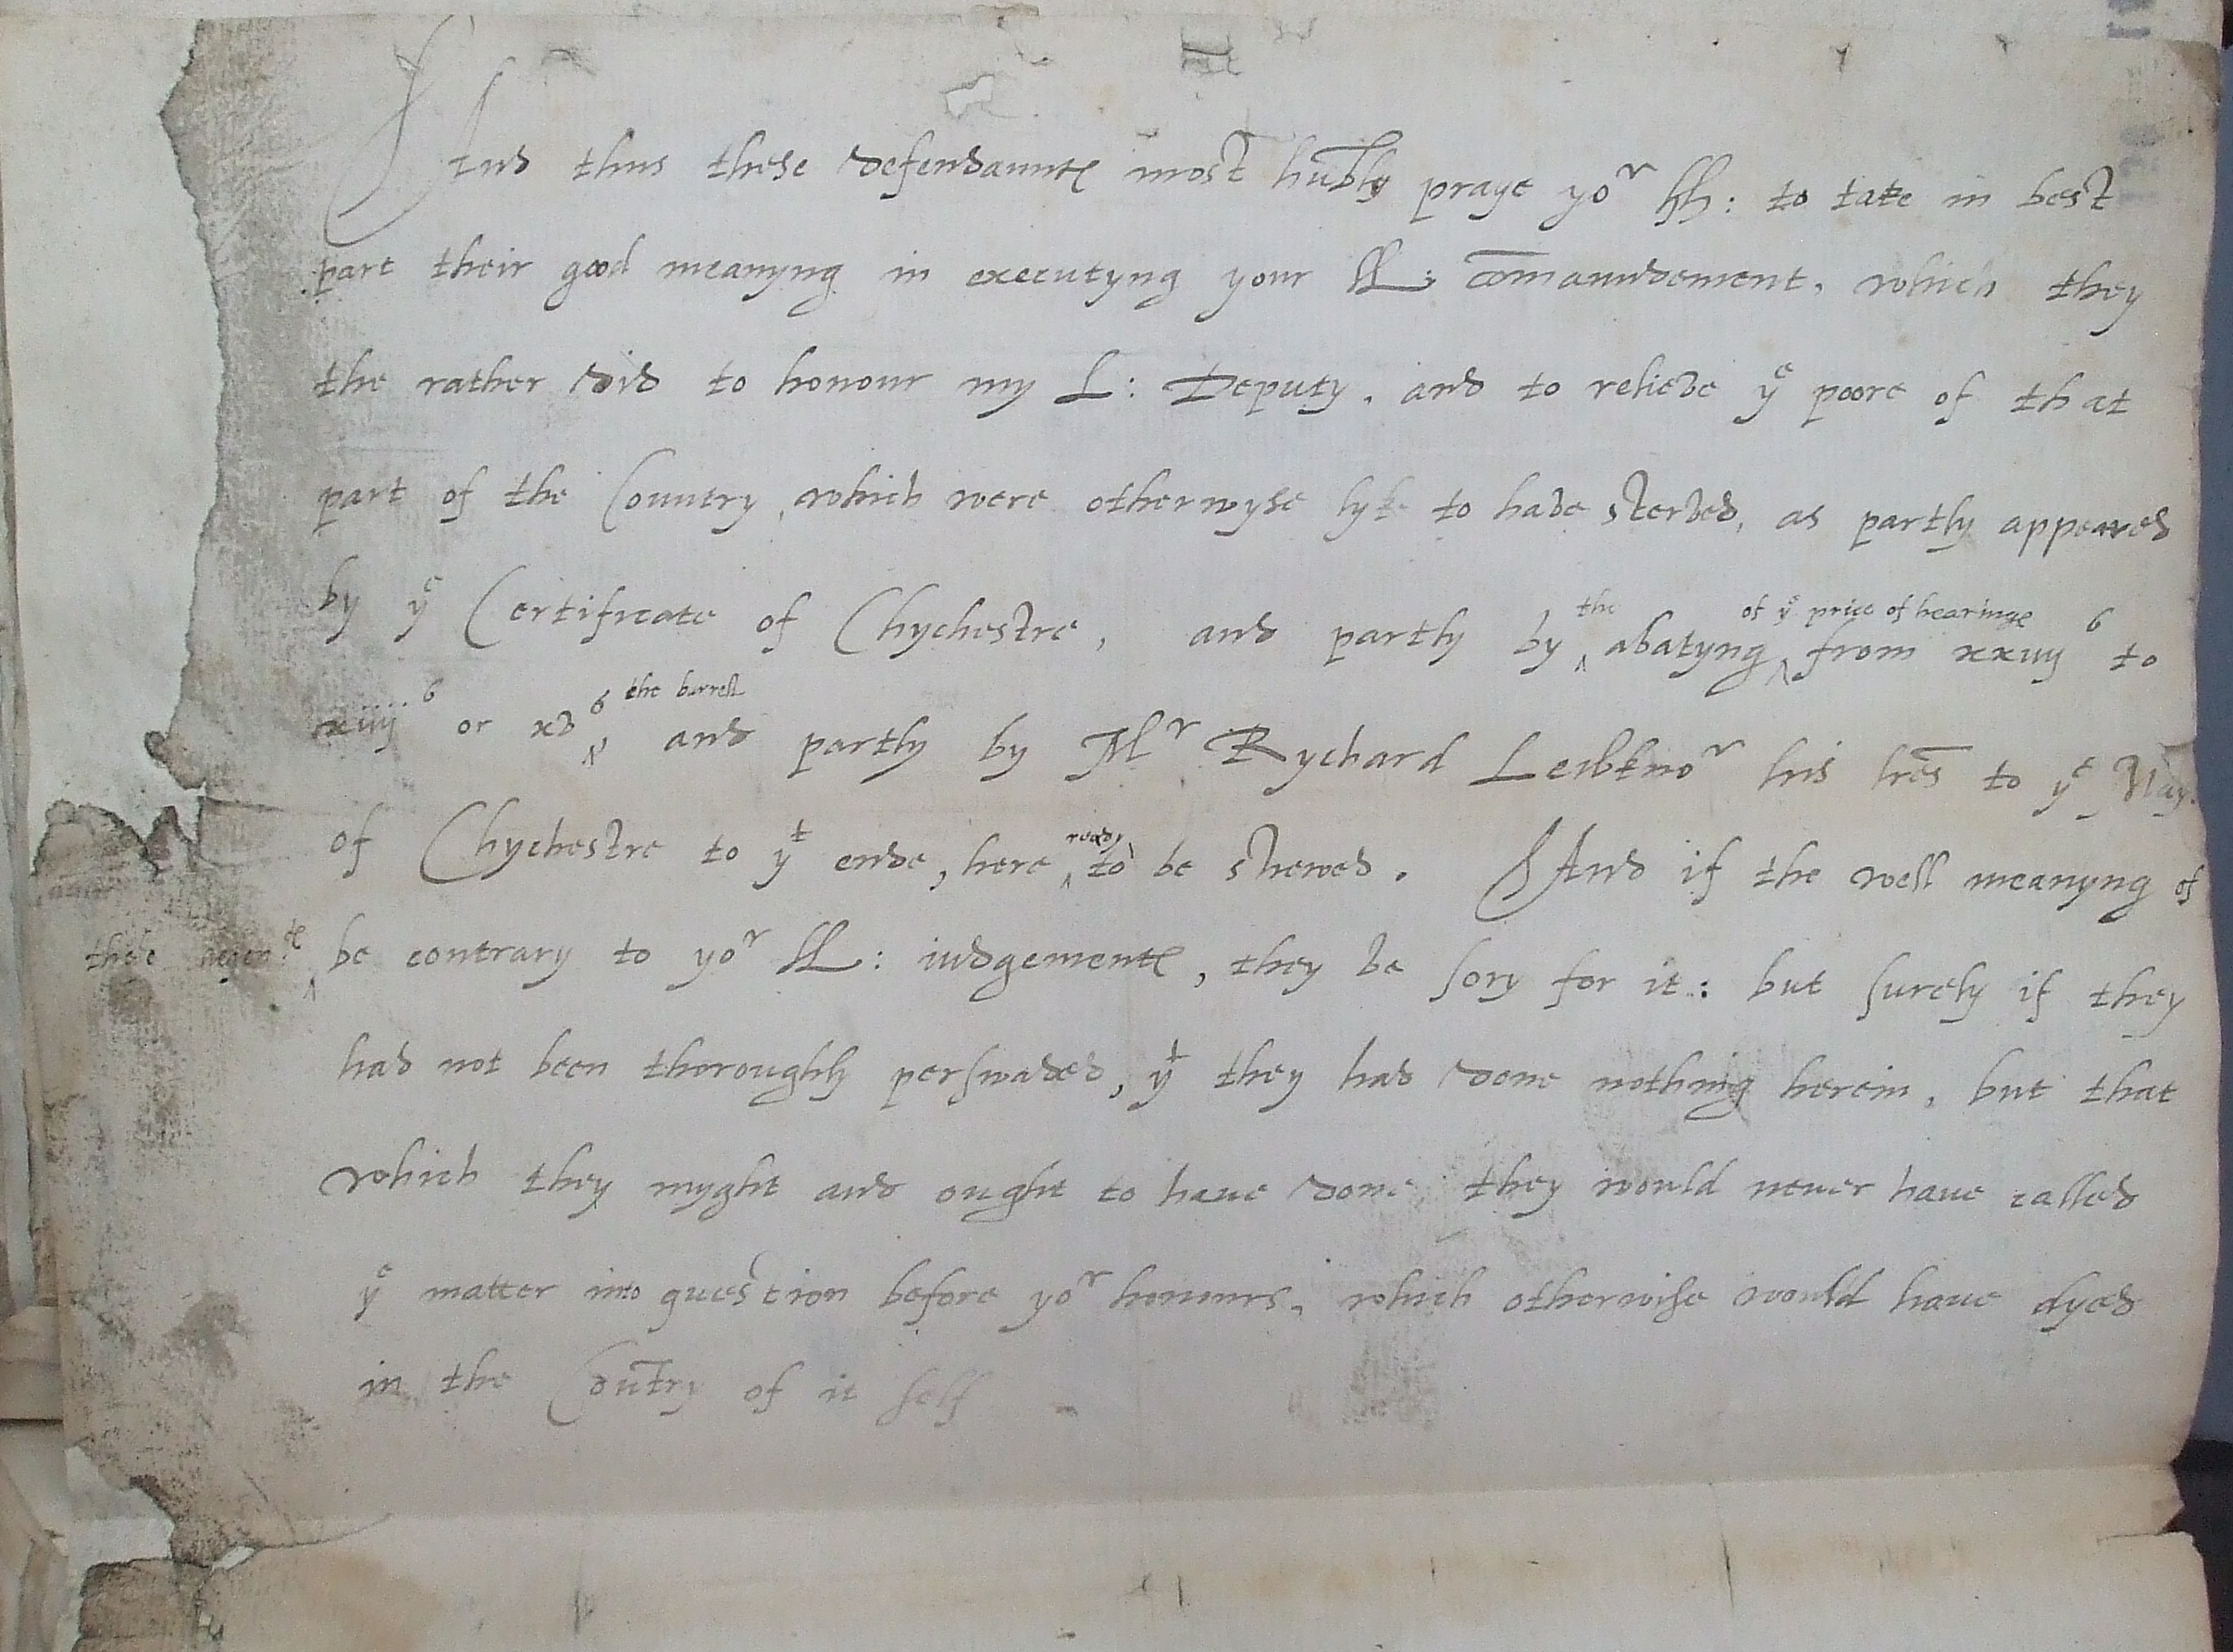 And thus these defendauntes most hūbly praye yoʳ hh: to take in best
part their good meanyng in executyng your LL: com̄aundement, which they
the rather did to honour my L: Deputy, and to relieve yᵉ poore of that
part of the Country, which were otherwyse lyke to have sterved, as partly appeared
by yᵉ Certificate of Chychestre, and partly by ^the abatyng ^of yᵉ price of hearinge from xxiiijˢ to
xiiijˢ or xvˢ ^the barrell and partly by Mʳ Rychard Lewknoʳ his lr̄es to yᵉ May
of Chychestre to yᵗ ende, here ^ready to be shewed. And if the well meanyng of
these agentes ^ be contrary to yoʳ LL: iudgementes, they be sory for it: but surely if they
had not been thoroughly perswaded, yᵗ they had done nothing herein, but that
which they myght and ought to have done they would never have called
yᵉ matter into question before yoʳ honours, which otherwise would have dyed
in the Coūtry of it self